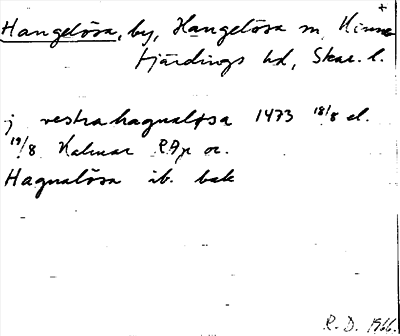 Hangelösa, by, Hangelösa sn, Kinne
fjärdings hd, Skar. l.
j vestra hagnaløsa 1473 18/8 el.
19/8 Kalmar RAp or.
Hagnalösa ib. bak
R. D. 1966.